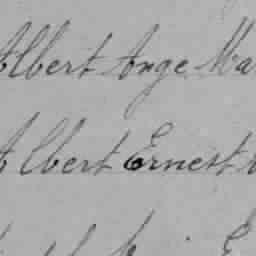 Albert Ange Ma
Albert Ernest